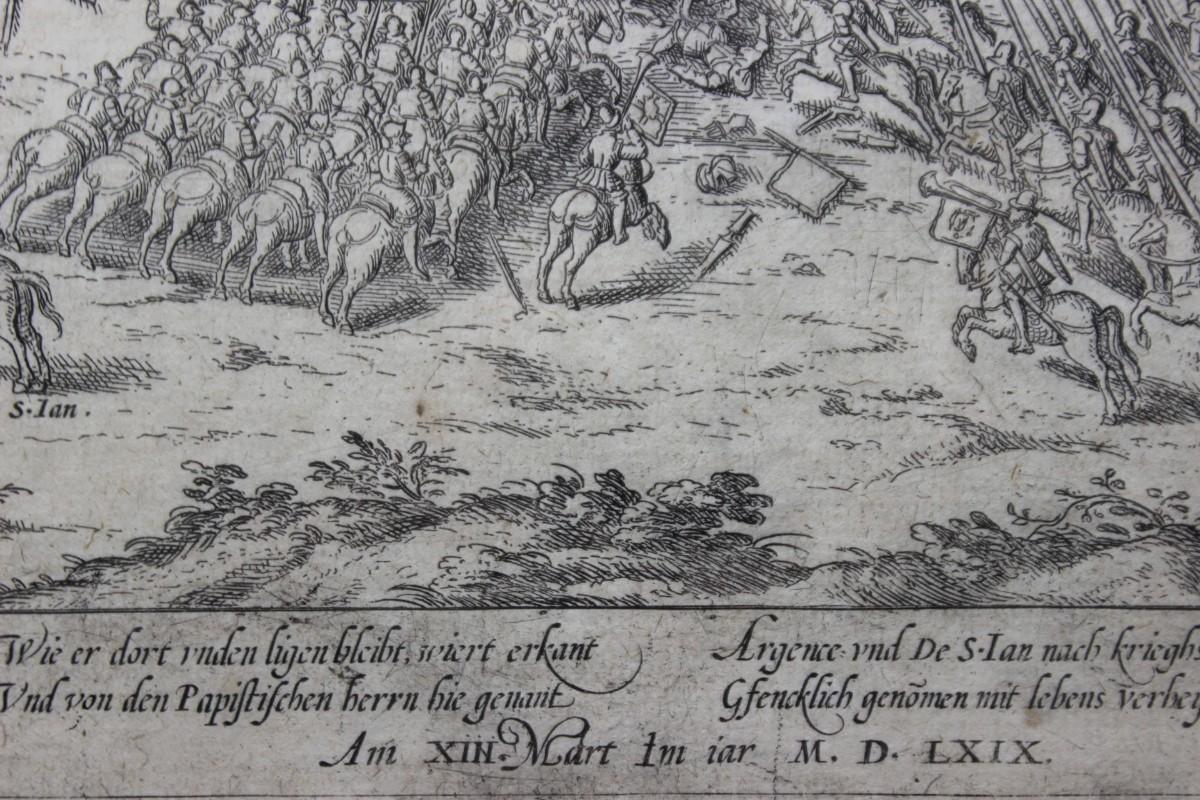 S. Ian.
Wie er dort vnden ligen bleibt, wiert erkant
Vnd von den Papistischen herrn hie genant
Argence vnd De S. Ian nach kriegh
Gfencklich genõmen mit lebens verhei
Am XIII. Mart Im iar M. D. LXIX.